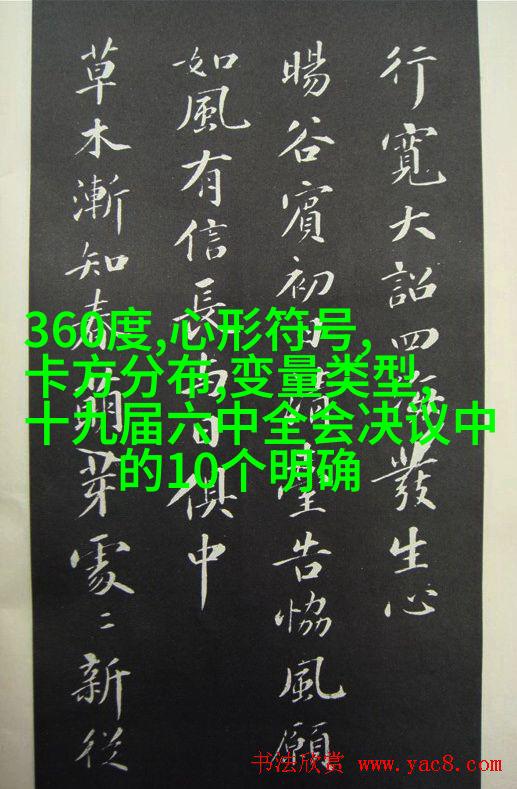 行寬大詔四海發生心
暘谷賓初日清臺告恊風願
如風有信長與日俱中
草木漸知春萌芽處〻新從
360度,心形符号,
卡方分布,变量类型,
十九届六中全会决议中
的10个明确
书法欣赏 www.yac8.com